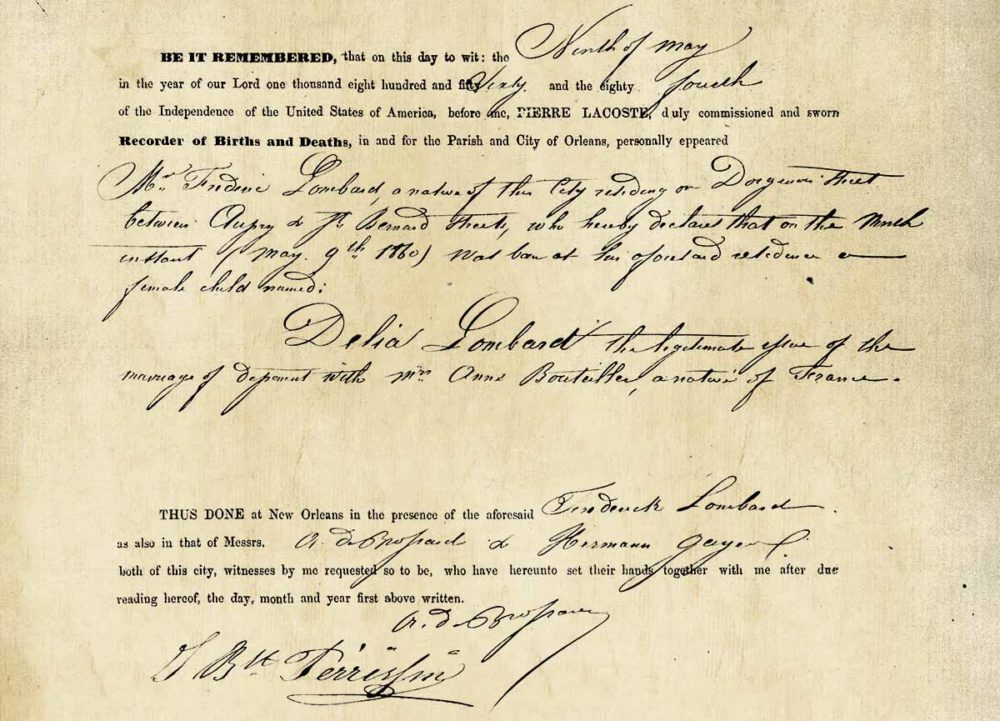 BE IT REMEMBERED, that on this day to wit: the Ninth of May
in the year of our Lord one thousand eight hundred and fifty Sixty and the eighty fourth
of the Independence of the United States of America, before me, PIERRE LACOSTE, duly commissioned and sworn
Recorder of Births and Deaths, in and for the Parish and City of Orleans, personally eppeared
Mr. Lombard, a native of this City residing on Dorgenois Street
between & St. Bernard Streets, who hereby declares that on the Ninth
instant (May. 9th 1860) was born at his aforesaid residence a
female child named:
Delia Lombard the legitimate issue of the
marriage of deponent with Mrs Anne Bouteiller, a native of France.
THUS DONE at New Orleans in the presence of the aforesaid Frederick Lombard.
as also in that of Messrs. A. de Brossard & Hermann
both of this city, witnesses by me requested so to be, who have hereunto set their hands together with me after due
reading hereof, the day, month and year first above written.
A. de Brossard